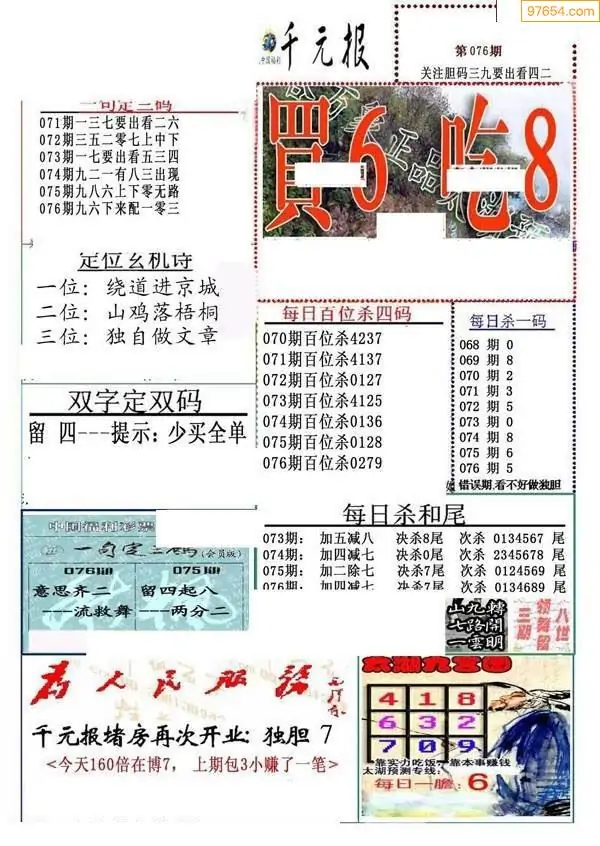 97654.com
千元报
中国福利
第076期
关注胆码三九要出看四二
一句定三码
071期一三七要出看二六
072期三五二零七上中下
073期一七要出看五三四
074期九二一有八三出现
075期九八六上下零无路
076期九六下来配一零三
買6 吃8
定位玄机诗
一位：绕道进京城
二位：山鸡落梧桐
三位：独自做文章
每日百位杀四码
070期百位杀4237
071期百位杀4137
072期百位杀0127
073期百位杀4125
074期百位杀0136
075期百位杀0128
076期百位杀0279
每日杀一码
068 期 0
069 期 8
070 期 2
071 期 3
072 期 5
073 期 0
074 期 8
075 期 6
076 期 5
错误期,看不好做独胆
双字定双码
留 四---提示：少买全单
每日杀和尾
073期： 加五减八 决杀8尾 次杀 0134567 尾
074期： 加四减七 决杀0尾 次杀 2345678 尾
075期： 加二除七 决杀7尾 次杀 0124569 尾
076期： 加四减七 决杀7尾 次杀 0134689 尾
中国福利彩票
一句定三码(会员版)
076期
意思齐二
---流救舞
075期
留四起八
---两分二
山九轉
七路開
一雲明
三湖
领舞留
八世
为人民服务
千元报堵房再次开业：独胆 7
<今天160倍在博7， 上期包3小赚了一笔>
太湖九宫图
4 1 8
6 3 2
7 0 9
靠实力吃饭，靠本事赚钱
太湖预测专线：
每日一胆： 6